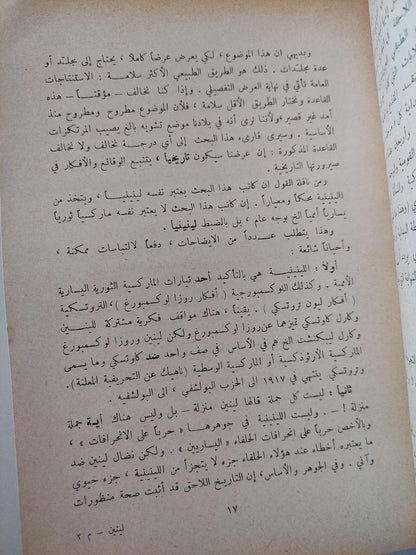 وبديهي ان هذا الموضوع ، لكي يعرض عرضاً كاملا ، يحتاج إلى مجلّد أو
عدة مجلّدات . ذلك هو الطريق الطبيعي الأكثر سلامة : الاستنتاجات
العامة تأتي في نهاية العرض التفصيلي . وإذا كنا نخالف – مؤقتاً – هذه
القاعدة ونختار الطريق الأقل سلامة ، فلأن الموضوع مطروح ومطروح منذ
أمد غير قصير ، ولأننا نرى أنه في بلادنا موضع تشويه بالغ يصيب المرتكزات
الأساسية . وسيرى قارىء هذا البحث إلى أي درجة نخالف ولا نخالف
القاعدة المذكورة : إن عرضنا سيكون تاريخياً ، يتتبع الوقائع والأفكار في
صيرورتها التاريخية .
ومن نافلة القول ان كاتب هذا البحث يعتبر نفسه لينينياً ، ويتخذ من
اللينينية محكاً ومعياراً . إن كاتب هذا البحث لا يعتبر نفسه ماركسياً ثورياً
يسارياً أممياً الخ بوجه عام ، بل بالضبط لينينياً .
وهذا يتطلب عدداً من الايضاحات ، دفعاً لالتباسات ممكنة ،
وأحياناً شائعة :
أولاً : اللينينية هي بالتأكيد أحد تيارات الماركسية الثورية اليسارية
الأممية . وكذلك اللوكسمبورجية ( أفكار روزا لوكسمبورغ ) ، التروتسكية
( أفكار ليون تروتسكي ) . يقيناً ، هناك مواقف فكرية مشتركة للينين
وكارل كاوتسكي تميزهما عن روزا لوكسمبورغ ولكن لينين وروزا لوكسمبورغ
وكارل ليبكنشت الخ هم في الأساس في صف واحد ضد كاوتسكي وما يسمى
الماركسية الأرثوذكسية أو الماركسية الوسطية ( ناهيك عن التحريفية المعلنة ) .
وتروتسكي ينتهي في ١٩١٧ الى الحزب البولشفي ، الى البولشفيه .
ثانياً : ليست كل جملة قالها لينين منزلة – بل وليس هناك أية جملة
منزلة ! – . وليست اللينينية في جوهرها « حرباً على الانحرافات » ،
وبالأخص حرباً على انحرافات الحلفاء « اليساريين » . ولكن نضال لينين ضد
ما يعتبره أخطاء عند هؤلاء الحلفاء جزء لا يتجزأ من اللينينية ، جزء حيوي
وآني . وفي الجوهر والأساس ، إن التاريخ اللاحق قد أثبت صحة منظورات
١٧
لينين – م ٢